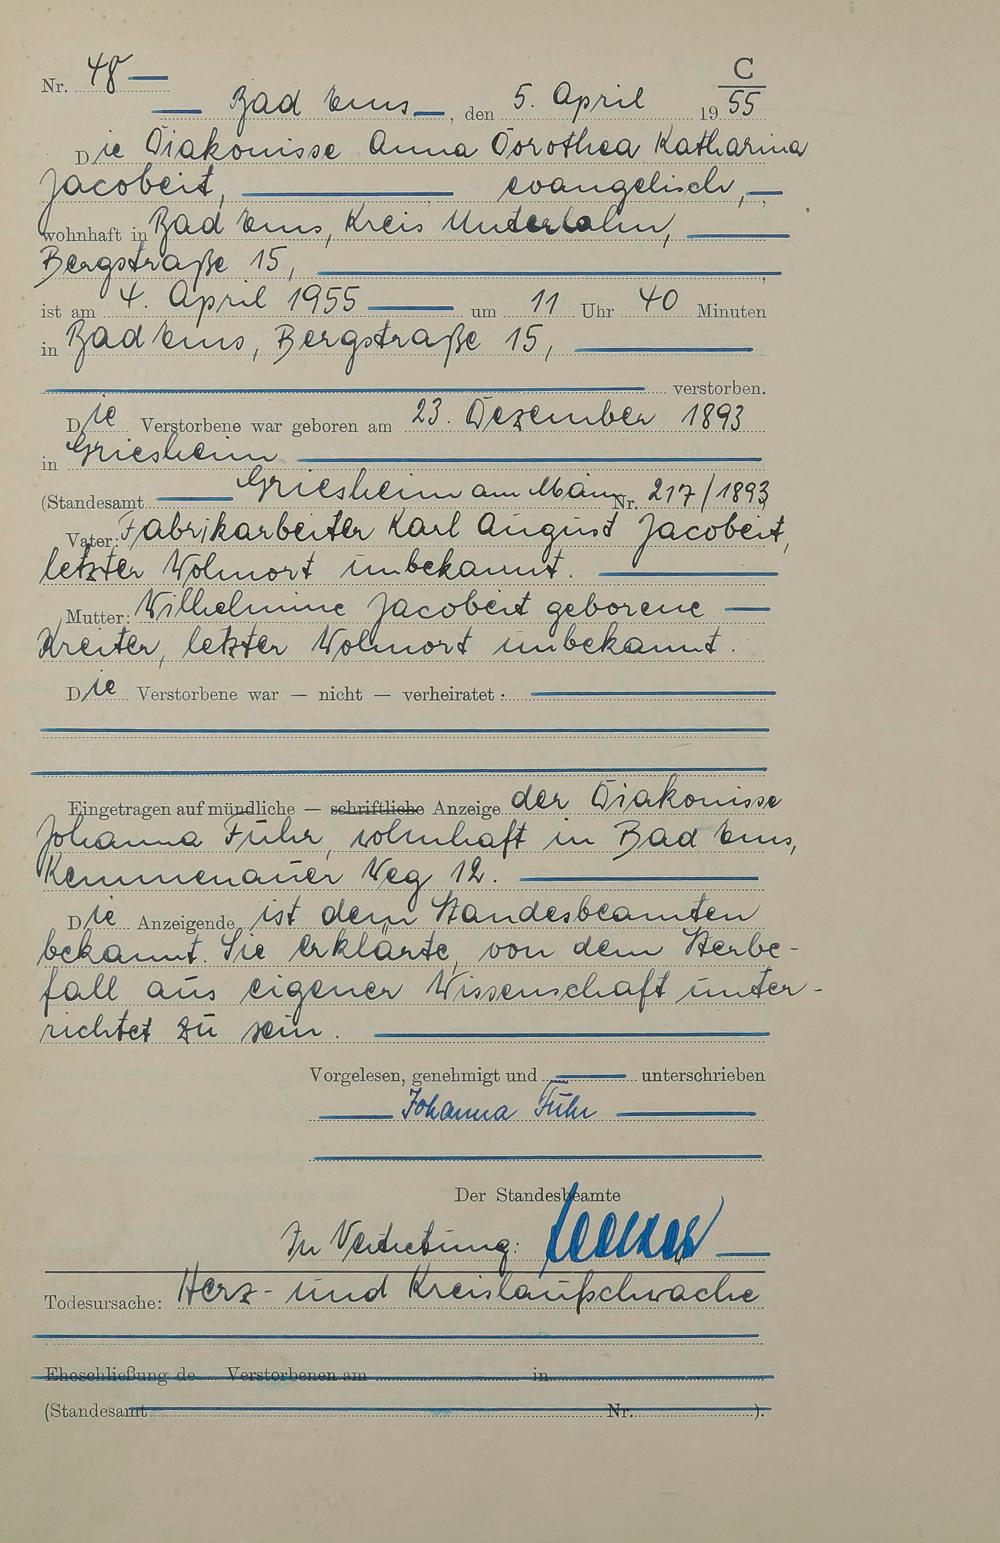 Nr. 48
C
Bad Ems, den 5. April 1955
Die Diakonisse Anna Dorothea Katharina
Jacobeit, evangelisch,
wohnhaft in Bad Ems, Kreis Unterlahn,
Bergstraße 15,
ist am 4. April 1955 um 11 Uhr 40 Minuten
in Bad Ems, Bergstraße 15,
verstorben.
Die Verstorbene war geboren am 23. Dezember 1893
in Griesheim
(Standesamt Griesheim am Main Nr. 217/1893
Vater: Fabrikarbeiter Karl August Jacobeit,
letzter Wohnort unbekannt.
Mutter: Wilhelmine Jacobeit geborene
Kreiter, letzter Wohnort unbekannt.
Die Verstorbene war — nicht — verheiratet:
Eingetragen auf mündliche — schriftliche Anzeige der Diakonisse
Johanna Fuhr, wohnhaft in Bad Ems,
Kemmenauer Weg 12.
Die Anzeigende ist dem Standesbeamten
bekannt. Sie erklärte, von dem Sterbe-
fall aus eigener Wissenschaft unter-
richtet zu sein.
Vorgelesen, genehmigt und unterschrieben
Johanna Fuhr
Der Standesbeamte
In Vertretung:
Todesursache: Herz- und Kreislaufschwäche
Eheschließung de Verstorbenen am in
(Standesamt Nr. ).